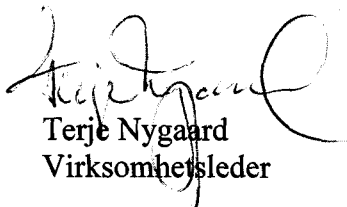 Terje Nygaard
Terje Nygaard
Virksomhetsleder